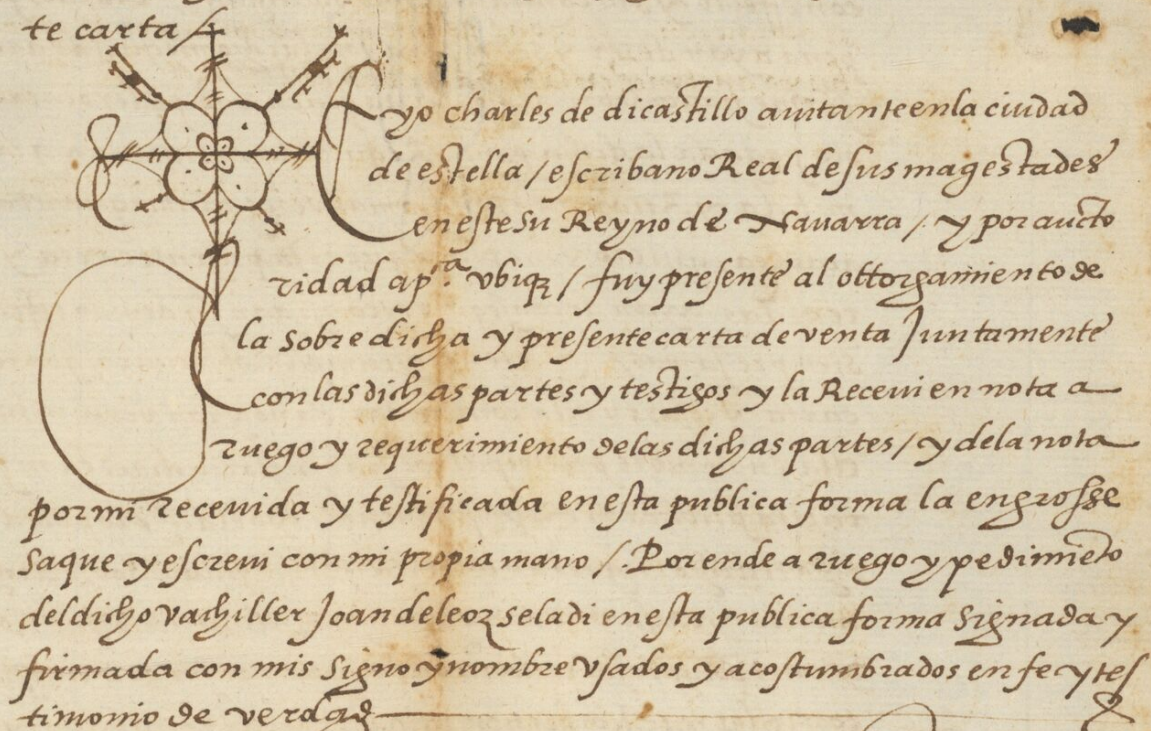 te carta /
E yo charles de dicastillo avitante en la ciudad
de estella / escribano Real de sus magestades
en este su Reyno de Navarra /. y por aucto
ridad ap.ª ubiqz / fuy presente al ottorgamiento de
la sobre dicha y presente carta de venta Juntamente
con las dichas partes y testigos y la Recevi en nota a
ruego y requerimiento de las dichas partes / y de la nota
por mi recevida y testificada en esta publica forma la engrosse
saque y escrevi con mi propia mano /. Por ende a ruego y pedimieto
del dicho vachiller Joan de leoz se la di en esta publica forma signada y
firmada con mis signo y nombre usados y acostumbrados en fe y tes
timonio de verdad